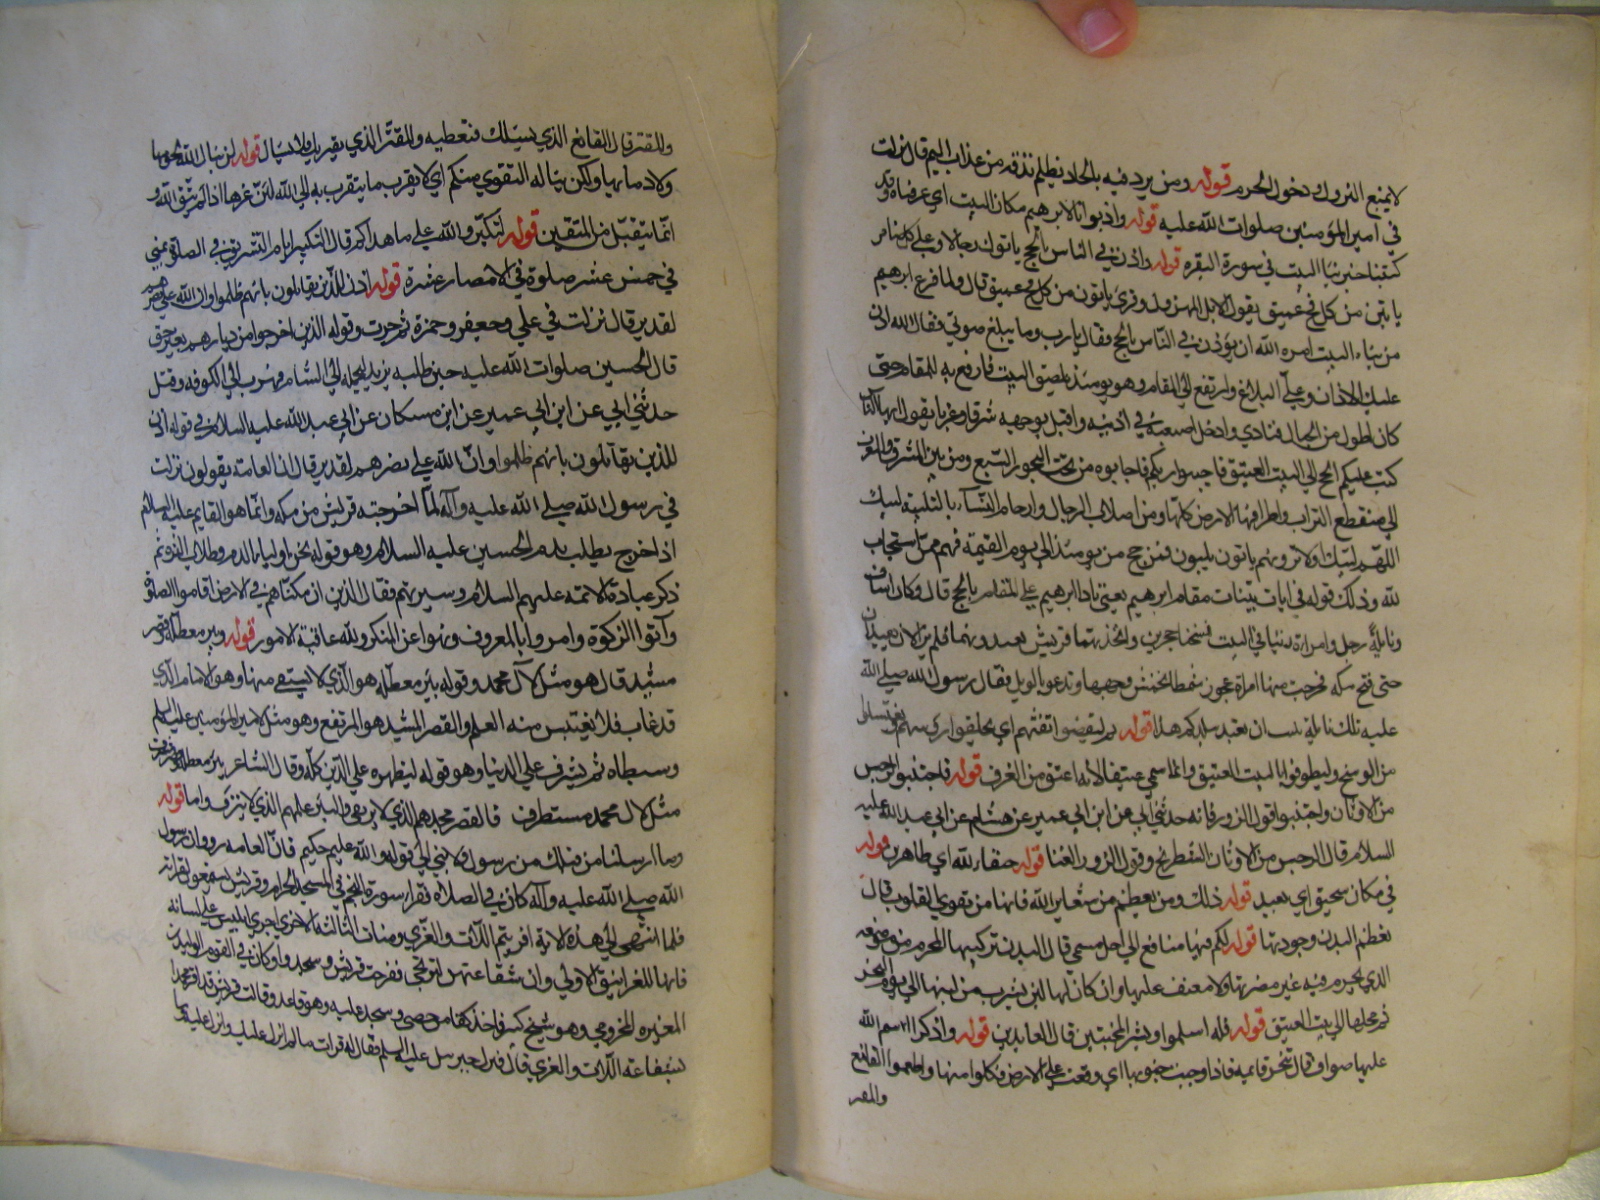 لا يمنع النزول ودخول الحرم قوله ومن يرد فيه بالحاد بظلم نذقه من عذاب اليم قال نزلت
في امير المؤمنين صلوات الله عليه قوله واذ بوانا لابرهيم مكان البيت اي عرفناه وقد
كتبنا خبر بنا البيت في سورة البقره قوله واذن في الناس بالحج ياتوك رجالا وعلى كل ضامر
ياتين من كل فج عميق يقول الابل المهزوله وقرئ ياتون من كل فج عميق قال ولما فرغ ابرهيم
من بناء البيت امره الله ان يؤذن في الناس بالحج فقال يارب وما يبلغ صوتي فقال الله اذن
عليك الاذان وعليّ البلاغ وارتفع الى المقام وهو يومئذ ملصق البيت فارفع به المقام حتى
كان اطول من الجبال فنادي وادخل اصبعيه في اذنيه واقبل بوجهه شرقا وغربا يقول ايها الناس
كتب عليكم الحج الي البيت العتيق فاجيبوا ربكم فاجابوه من تحت البحور السبع ومن بين المشرق والمغرب
الي منقطع التراب واطرافها الارض كلها ومن اصلاب الرجال وارحام النساء بالتلبية لبيك
اللهم لبيك ولا ترونهم ياتون يلبون فمن حج من يومئذ الي يوم القيمة فهم ممن استجاب
لله وذلك قوله في ايات بينات مقام ابرهيم يعني نادا ابرهيم علي المقام بالحج قال وكان اساف
ونايلة رجل وامراة زنيا في البيت فمسخا حجرين واتخذتهما قريش يعبدونهما فلم يزالان يعبدان
حتى فتح مكه فخرجت منها امراة عجوز شمطا تخمش وجهها وتدعو بالويل فقال رسول الله صلي الله
عليه تلك نايلة يئست ان تعبد ببلدكم هذا قوله ثم ليقضوا تفثهم اي يحلقوا رؤسهم ويغتسلوا
من الوسخ وليطوفوا بالبيت العتيق وانما سمي عتيقا لانه اعتق من الغرق قوله فاجتنبوا الرجس
من الاوثان واجتنبوا قول الزور فانه حدثني ابي عن ابن ابي عمير عن هشام عن ابي عبد الله عليه
السلام قال الرجس من الاوثان الشطرنج وقول الزور الغنا قوله حنفاء لله اي طاهرين قوله
في مكان سحيق اي بعيد قوله ذلك ومن يعظم من شعاير الله فانها من تقوي القلوب قال
تعظم البدن وجودتها قوله لكم فيها منافع الي اجل مسمي قال البدن تركبها المحرم من موضعه
الذي يحرم فيه غير مضر بها ولا معنف عليها وان كان لها لبن يشرب من لبنها الي يوم النحر
ثم محلها الي بيت العتيق قوله فله اسلموا وبشر المخبتين قال العابدين قوله واذكروا اسم الله
عليها صواف قال تنحر قايمه فاذا وجبت جنوبها اي وقعت على الارض فكلوا منها واطعموا القانع
والمعتر
والمعتر قال القانع الذي يسئلك فتعطيه والمعتر الذي يعتريك ولا يسال قوله لن ينال الله لحومها
ولا دماؤها ولكن يناله التقوي منكم اي لا يقرب ما يتقرب به الي الله لئن نحرها اذا لم يتق الله و
انما يتقبل من المتقين قوله لتكبروا الله علي ما هداكم قال التكبير ايام التشريق في الصلوة بمني
في خمس عشر صلوة في الامصار عشرة قوله اذن للذين يقاتلون بانهم ظلموا وان الله علي نصرهم
لقدير قال نزلت في علي وجعفر وحمزة ثم جرت وقوله الذين اخرجوا من ديارهم بغير حق
قال الحسين صلوات الله عليه حين طلبه يزيد ليحمله الي الشام فهرب الي الكوفه وقتل
حدثني ابي عن ابن ابي عمير عن ابن مسكان عن ابي عبد الله عليه السلام في قوله اذن
للذين يقاتلون بانهم ظلموا وان الله علي نصرهم لقدير قال ان العامة يقولون نزلت
في رسول الله صلي الله عليه وآله لما اخرجته قريش من مكه وانما هو القايم عليه السلام
اذا خرج يطلب بدم الحسين عليه السلام وهو قوله نحن اولياء الدم وطلاب الترة ثم
ذكر عبادة الائمة عليهم السلام وسيرتهم فقال الذين ان مكناهم في الارض اقاموا الصلوة
وآتوا الزكوة وامروا بالمعروف ونهوا عن المنكر ولله عاقبة الامور قوله وبئر معطلة وقصر
مشيد قال هو مثل لآل محمد وقوله بئر معطلة هو الذي لا يستقي منها وهو الامام الذي
قد غاب فلا يقتبس منه العلم والقصر المشيد هو المرتفع وهو مثل لامير المؤمنين عليه السلم
وسبطاه ثم يشرف علي الدنيا وهو قوله ليظهره علي الدين كله وقال الشاعر بئر معطلة وقصر مشرف
مثل لال محمد مستطرف فالقصر مجدهم الذي لا يرتقي والبئر علمهم الذي لا ينزف واما قوله
وما ارسلنا من قبلك من رسول ولا نبي الي قوله والله عليم حكيم فان العامه رووا ان رسول
الله صلي الله عليه وآله كان في الصلاة يقرا سورة النجم في المسجد الحرام وقريش يستمعون لقراته
فلما انتهي الي هذه الاية افرايتم اللات والعزي ومنات الثالثة الاخري اجري ابليس علي لسانه
فانها للغرانيق الاولي وان شفاعتهن لترتجي ففرحت قريش وسجدوا وكان في القوم الوليد بن
المغيره المخزومي وهو شيخ كبير فاخذ كفا من حصي وسجد عليه وهو قاعد وقالت قريش قد اقر محمد
بشفاعة اللات والعزي قال فنزل جبرئيل عليه السلم فقال له قرات ما لم انزل عليك وانزل عليه